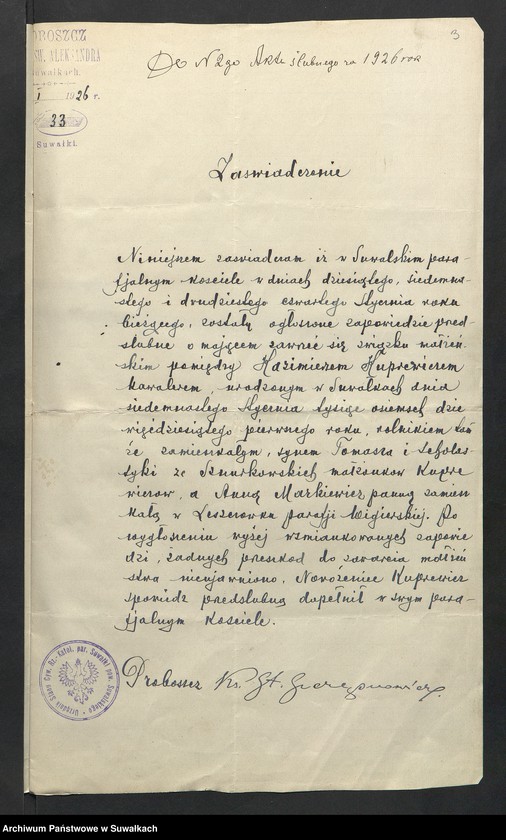 3
OROSZCZ
ŚW. ALEKSANDRA
Suwałkach.
I 1926 r.
33
Suwałki.
Do N 2go Aktu ślubnego za 1926 rok
Zaswiadczenie
Niniejszem zaświadczam iż w Suwalskim para-
fjalnym kościele w dniach dziesiątego, siedemna-
stego i dwudziestego czwartego Stycznia roku
bieżącego, zostały ogłoszone zapowiedzie przed-
ślubne o mającem zawrzeć się związku małżeń-
skim pomiędzy Kazimierzem Kuprewiczem
kawalerem, urodzonym w Suwałkach dnia
siedemnastego Stycznia tysiąc osiemset dzie
więdziesiątego pierwszego roku, rolnikiem tam
że zamieszkałym, synem Tomasza i Scholas-
tyki ze Sznurkowskich małżonków Kupre
wiczów, a Anną Markiewicz panną zamiesz
kałą w Leszczewku parafji Wigierskiej. Po
wygłoszeniu wyżej wzmiankowanych zapowie
dzi, żadnych przeszkod do zawarcia małżeń
stwa nieujawniono. Nowożeniec Kuprewicz
spowiedź przedślubną dopełnił w swym para-
fjalnym Kościele.
Proboszcz Ks. St.
Urzędnik Stanu Cyw. Rz.-Katol. par. Suwałki pow. Suwalskiego
Archiwum Państwowe w Suwałkach